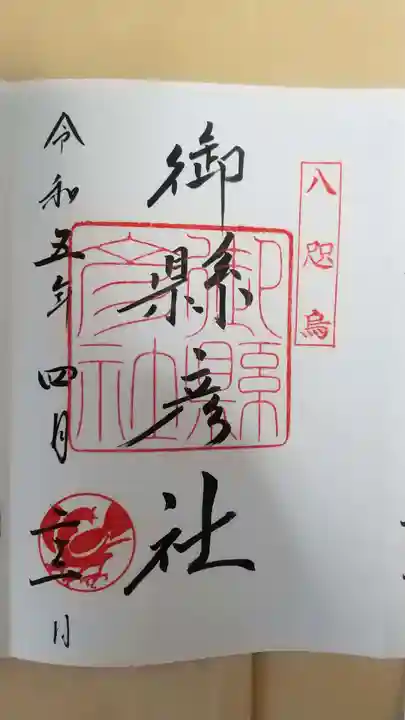 八咫烏
御縣彦社
御縣
彦社
令和五年四月 日